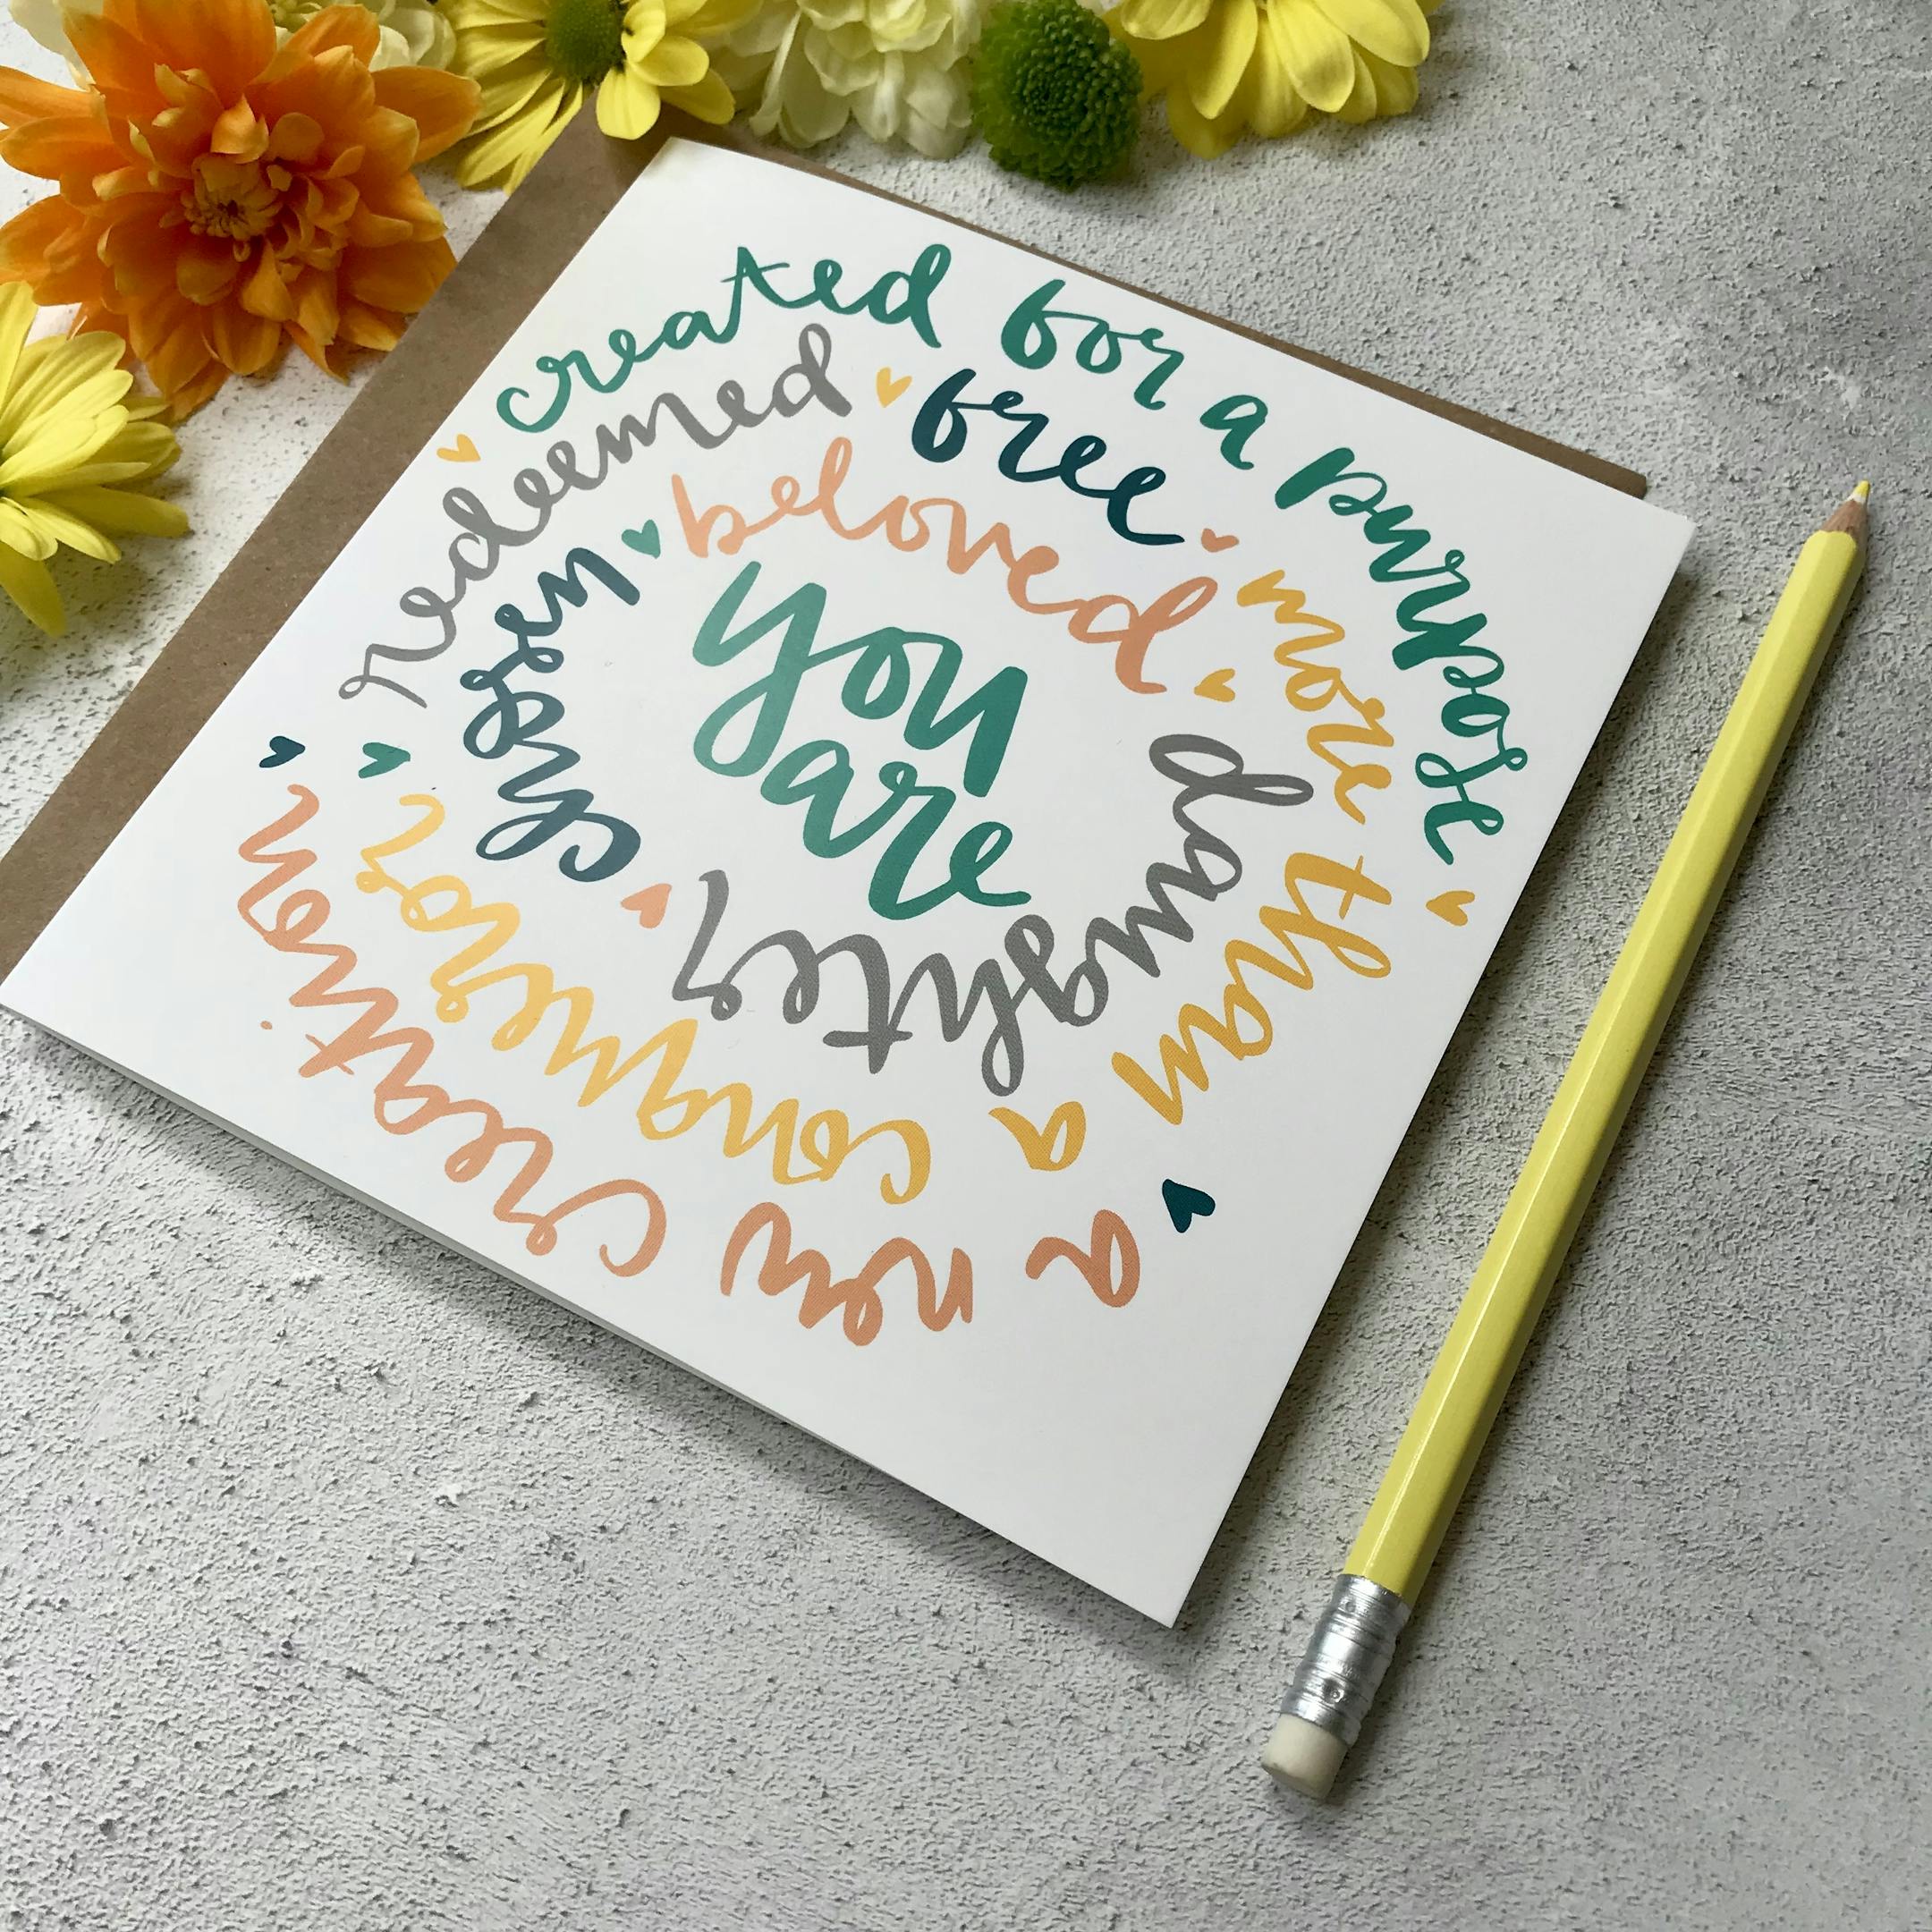 you
are
beloved
daughter
chosen
redeemed
free
more than a conqueror
created for a purpose
a new creation